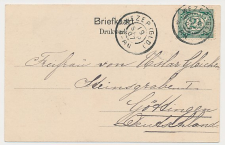 Briefkaart
Drukwerk
Freifrau von Uslar Gleichen
Steinsgraben 1
Göttingen
Deutschland